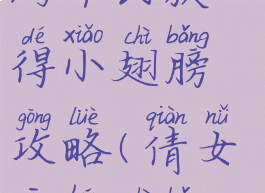 dé xiǎo chì bǎng
得小翅膀
gōng lüè qiàn nǚ
攻略(倩女